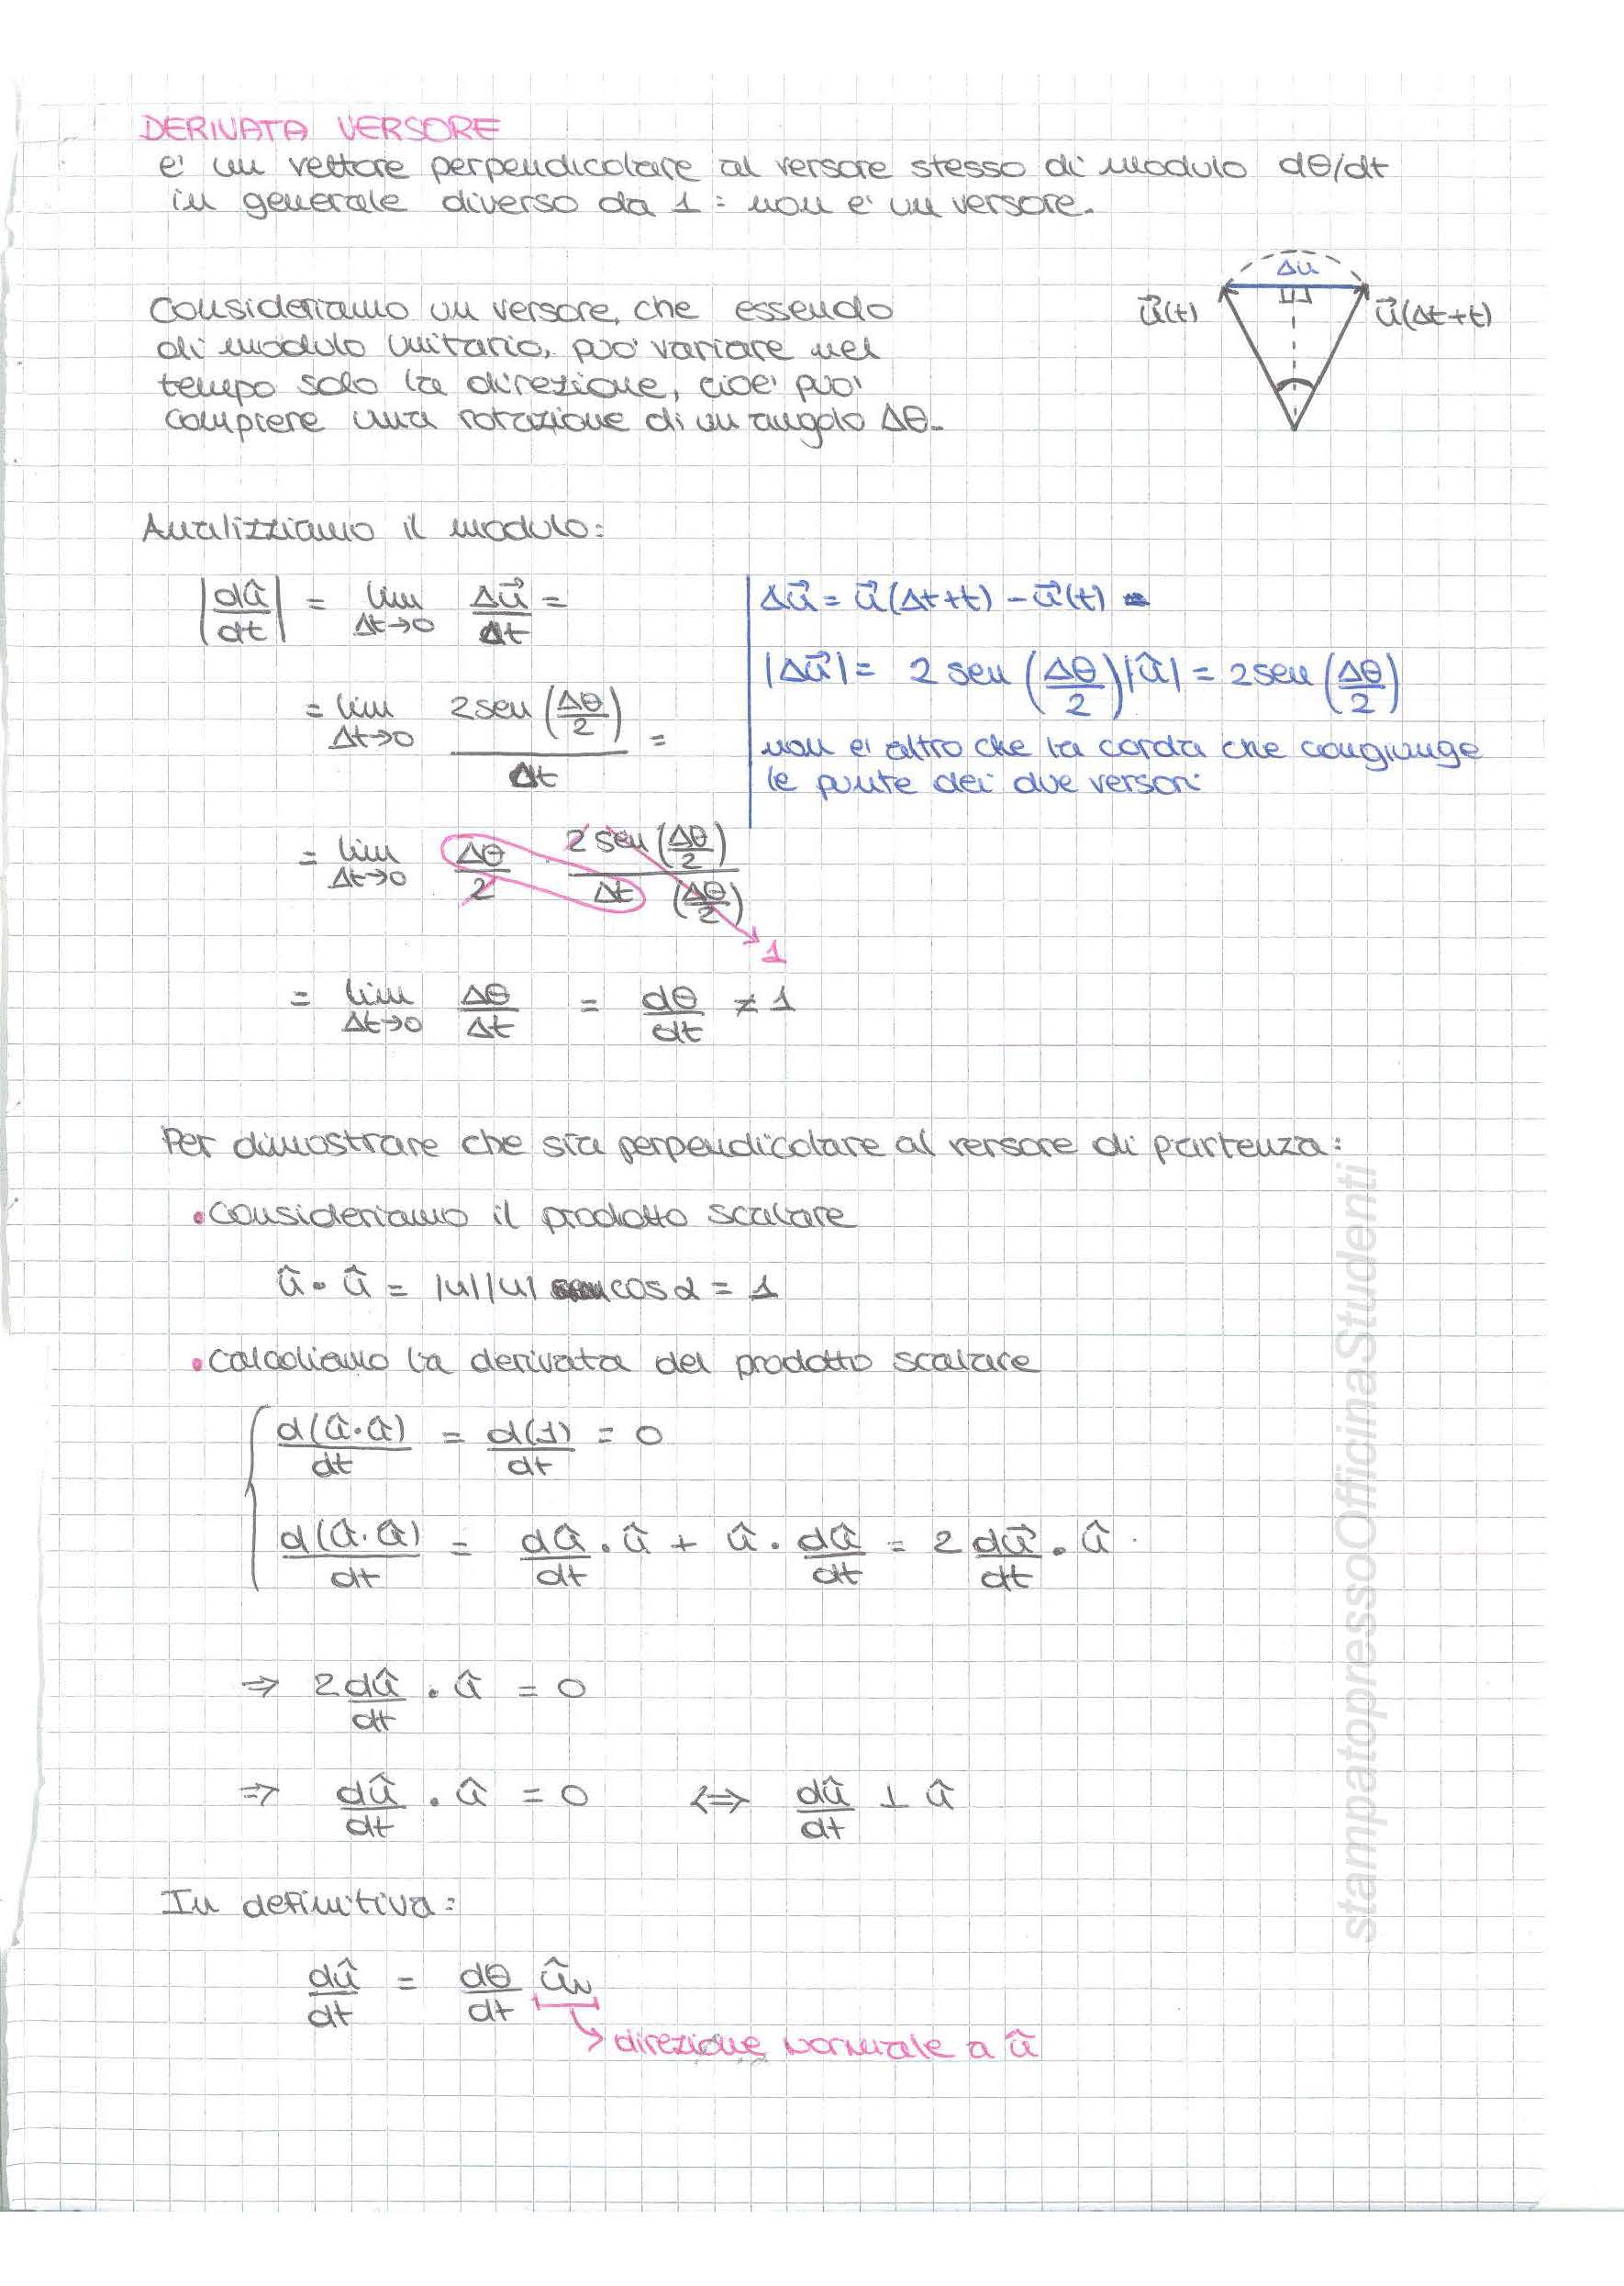 DERIVATA VERSORE
e' un vettore perpendicolare al versore stesso di modulo dθ/dt
in generale diverso da 1 : non e' un versore.
Δu
u⃗(t)
u⃗(Δt+t)
Consideriamo un versore, che essendo
di modulo unitario, puo' variare nel
tempo solo la direzione, cioe' puo'
compiere una rotazione di un angolo Δθ.
Analizziamo il modulo:
|dû/dt| = lim Δt→0 Δu⃗/Δt =
= lim Δt→0 2 sen (Δθ/2) / Δt =
Δu⃗ = u⃗(Δt+t) - u⃗(t)
|Δu⃗| = 2 sen (Δθ/2) |û| = 2 sen (Δθ/2)
non e' altro che la corda che congiunge
le punte dei due versori
= lim Δt→0 Δθ/2 · 2 sen (Δθ/2) / Δt (Δθ/2)
1
= lim Δt→0 Δθ/Δt = dθ/dt ≠ 1
Per dimostrare che sia perpendicolare al versore di partenza:
• Consideriamo il prodotto scalare
û • û = |u||u| cos α = 1
• Calcoliamo la derivata del prodotto scalare
d(û·û)/dt = d(1)/dt = 0
d(û·û)/dt = dû/dt • û + û • dû/dt = 2 du⃗/dt • û
⇒ 2 dû/dt • û = 0
⇒ dû/dt • û = 0 ⇔ dû/dt ⊥ û
In definitiva:
dû/dt = dθ/dt ûN
direzione normale a û
stampatopressoOfficinaStudenti